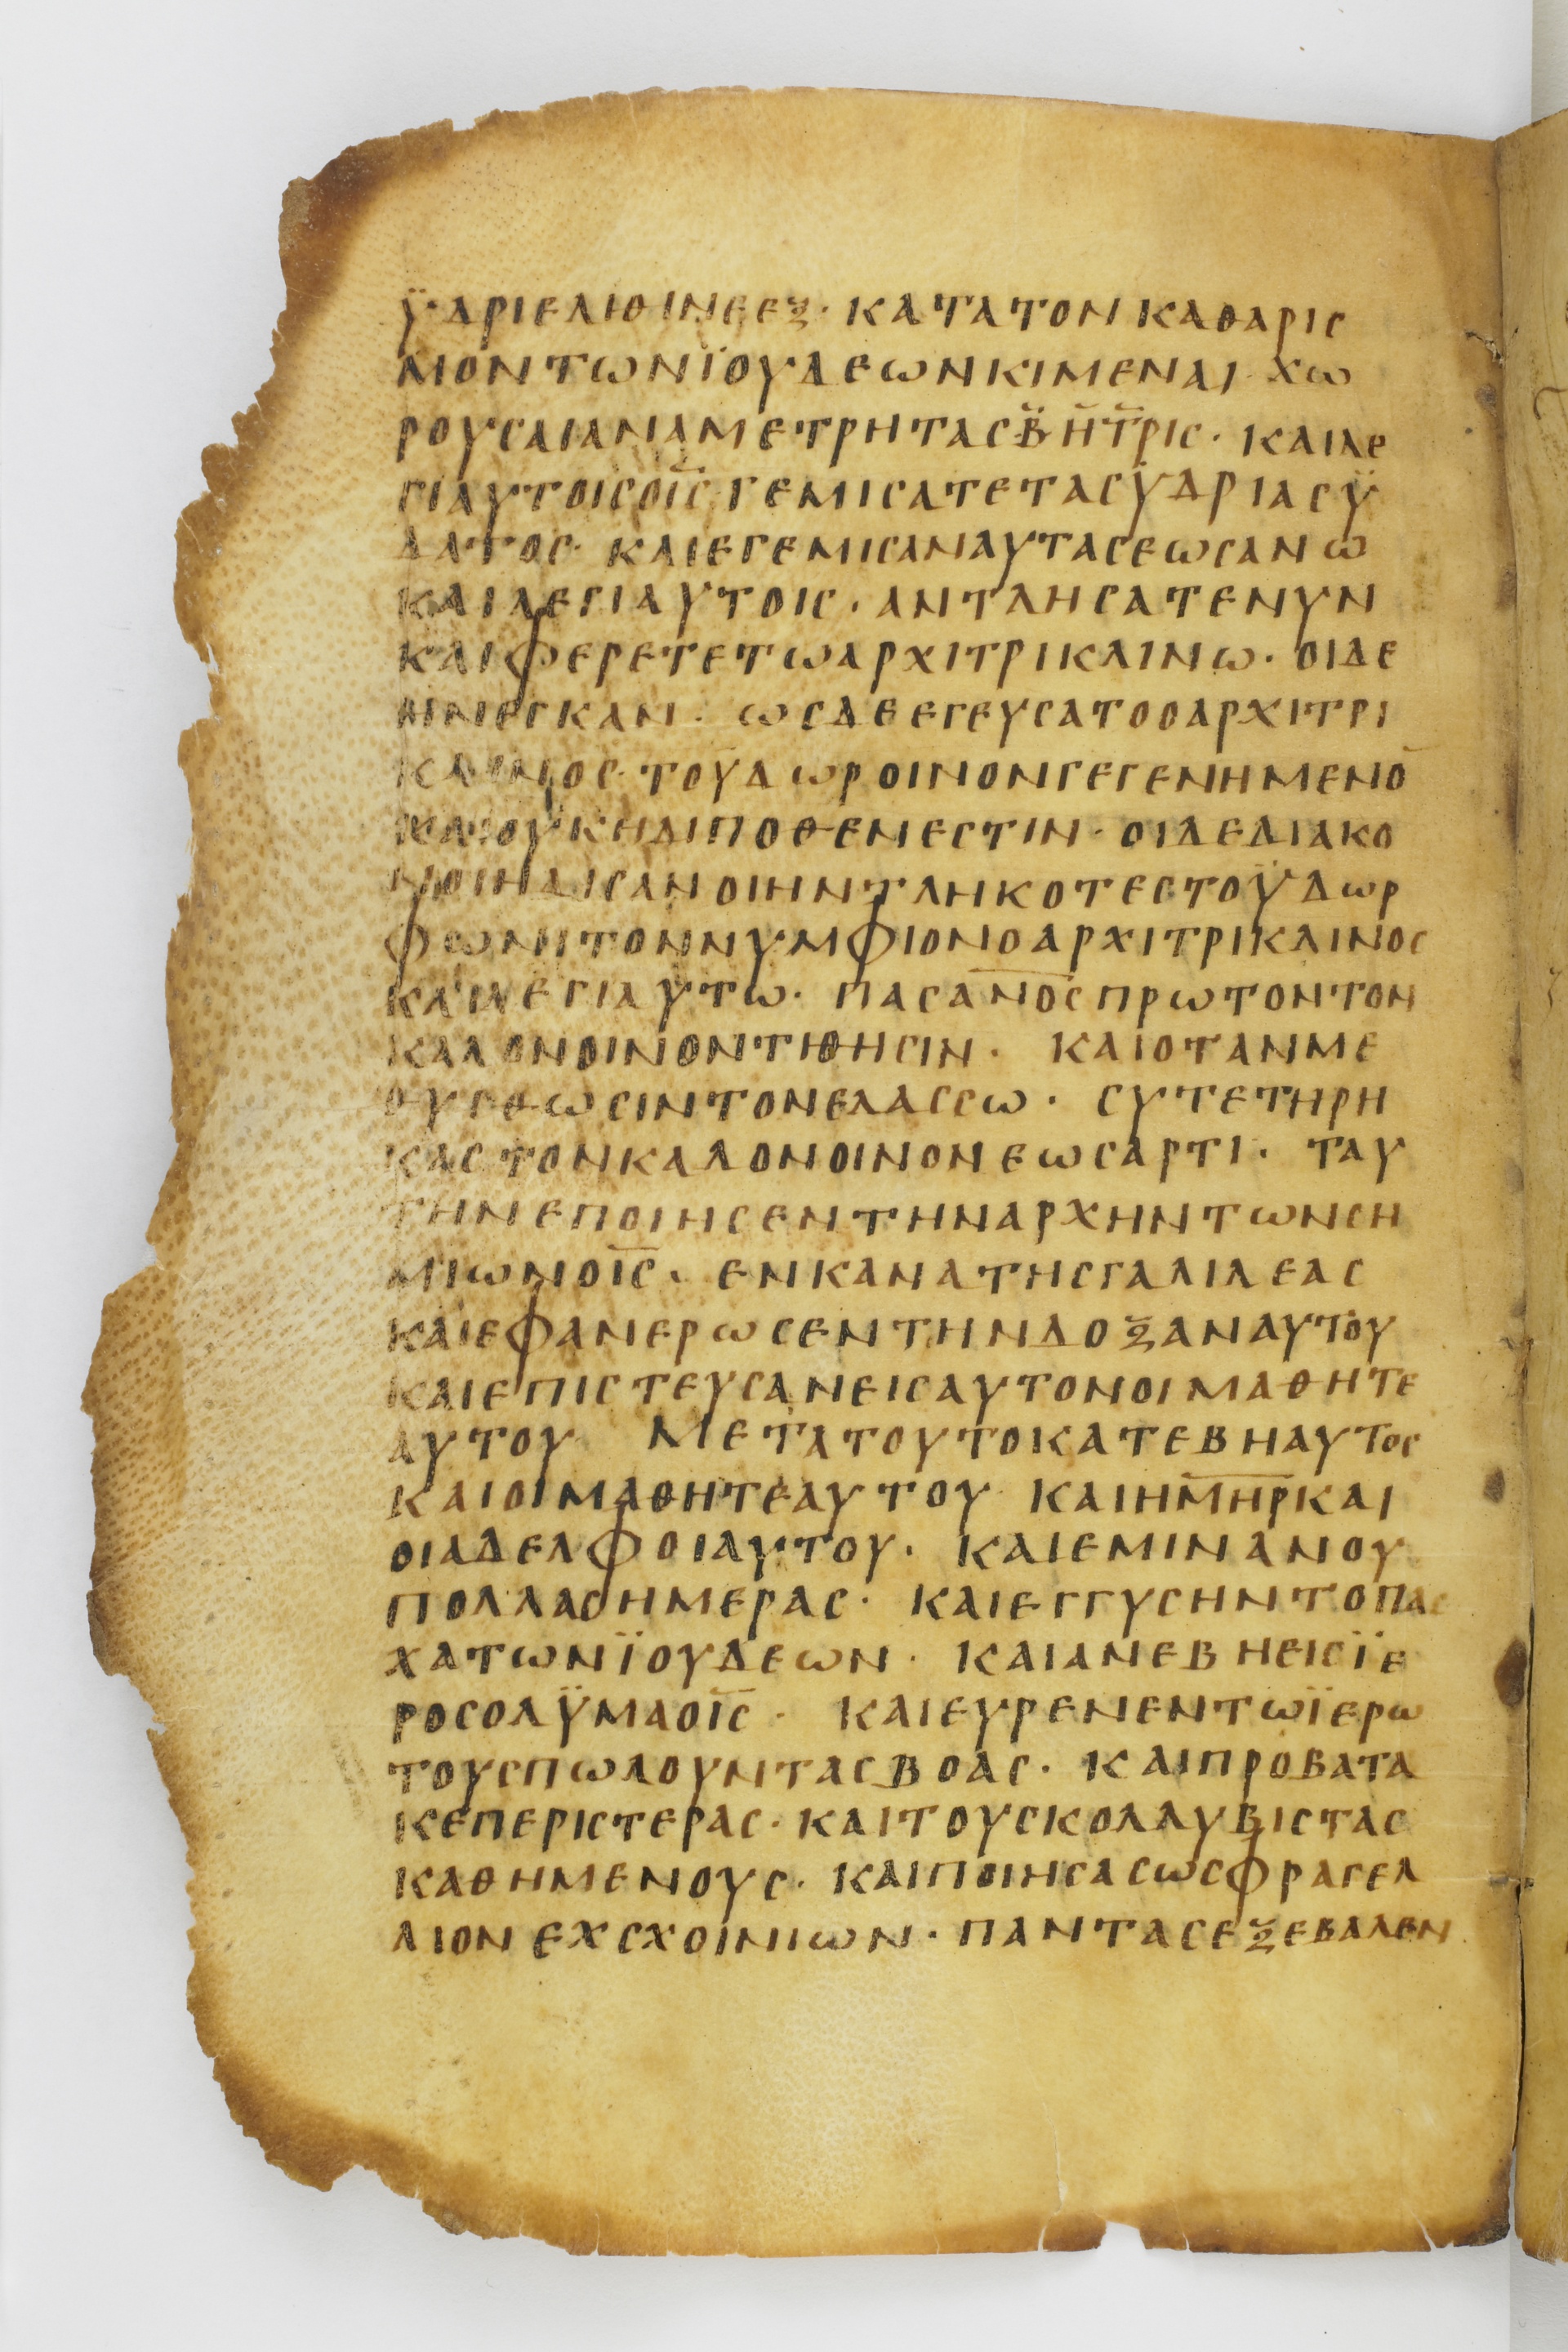 ϋδριελιθινεεξ· κατατονκαθαρις
μοντωνϊουδεωνκιμεναι· χω
ρουσαιαναμετρητασβ̅η̅τ̅ρις· καιλε
γιαυτοισοι̅ς̅· γεμισατετασϋδριασϋ
δατος· καιεγεμισαναυτασεωσανω
καιλεγιαυτοις· αντλησατενυν
καιφερετετωαρχιτρικλινω· οιδε
ηνεγκαν· ωσδεεγευσατοοαρχιτρι
κλινος· τουδωροινονγεγενημενο̅
καιουκηδιποθενεστιν· οιδεδιακο
νοιηδισανοιηντληκοτεστοϋδωρ
φωνιτοννυμφιονοαρχιτρικλινος
καιλεγιαυτω· πασα̅ν̅ο̅ς̅πρωτοντον
καλονοινοντιθησιν· καιοτανμε
θυσθωσιντονελασσω· συτετηρη
καστονκαλονοινονεωσαρτι· ταυ
τηνεποιησεντηναρχηντωνση
μιωνοι̅ς̅· ενκανατησγαλιλεας
καιεφανερωσεντηνδοξαναυτου
καιεπιστευσανεισαυτονοιμαθητε
αυτου Μετατουτοκατεβηαυτος
καιοιμαθητεαυτου καιημ̅η̅ρ̅και
οιαδελφοιαυτου· καιεμινανου
πολλασημερας· καιεγγυσηντοπας
χατωνϊουδεων· καιανεβηεισϊε
ροσολϋμαοι̅ς̅· καιευρενεντωϊερω
τουσπωλουντασβοας· καιπροβατα
κεπεριστερας· καιτουσκολλυβιστας
καθημενους· καιποιησασωσφραγελ
λιονεχσχοινιων· παντασεξεβαλεν